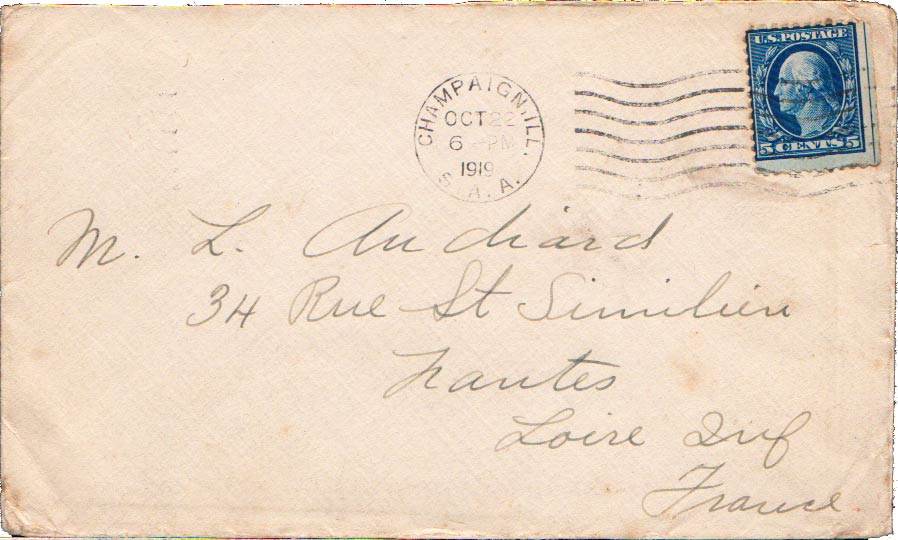 U.S. POSTAGE
5 CENTS 5
CHAMPAIGN, ILL.
OCT 22
6 - PM
1919
S. A. A.
M. L. Audiard
34 Rue St Similien
Nantes
Loire Inf
France